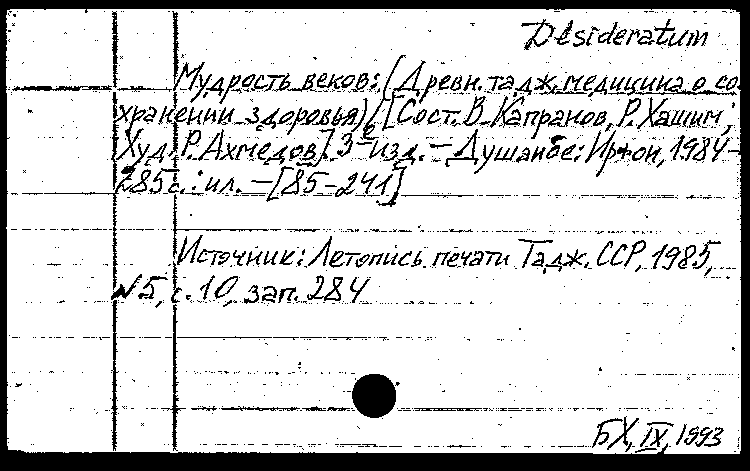 Desideratum
Мудрость веков: (Древн. тадж. медицина о со-
хранении здоровья) / [Сост. В. Капранов, Р. Хашим;
Худ. Р. Ахмедов]. 3-е изд. – Душанбе: Ирфон, 1984 –
285 с.: ил. – [85-241]
Источник: Летопись печати Тадж. ССР, 1985,
№5, с. 10, зап. 284
БХ, IX, 1993